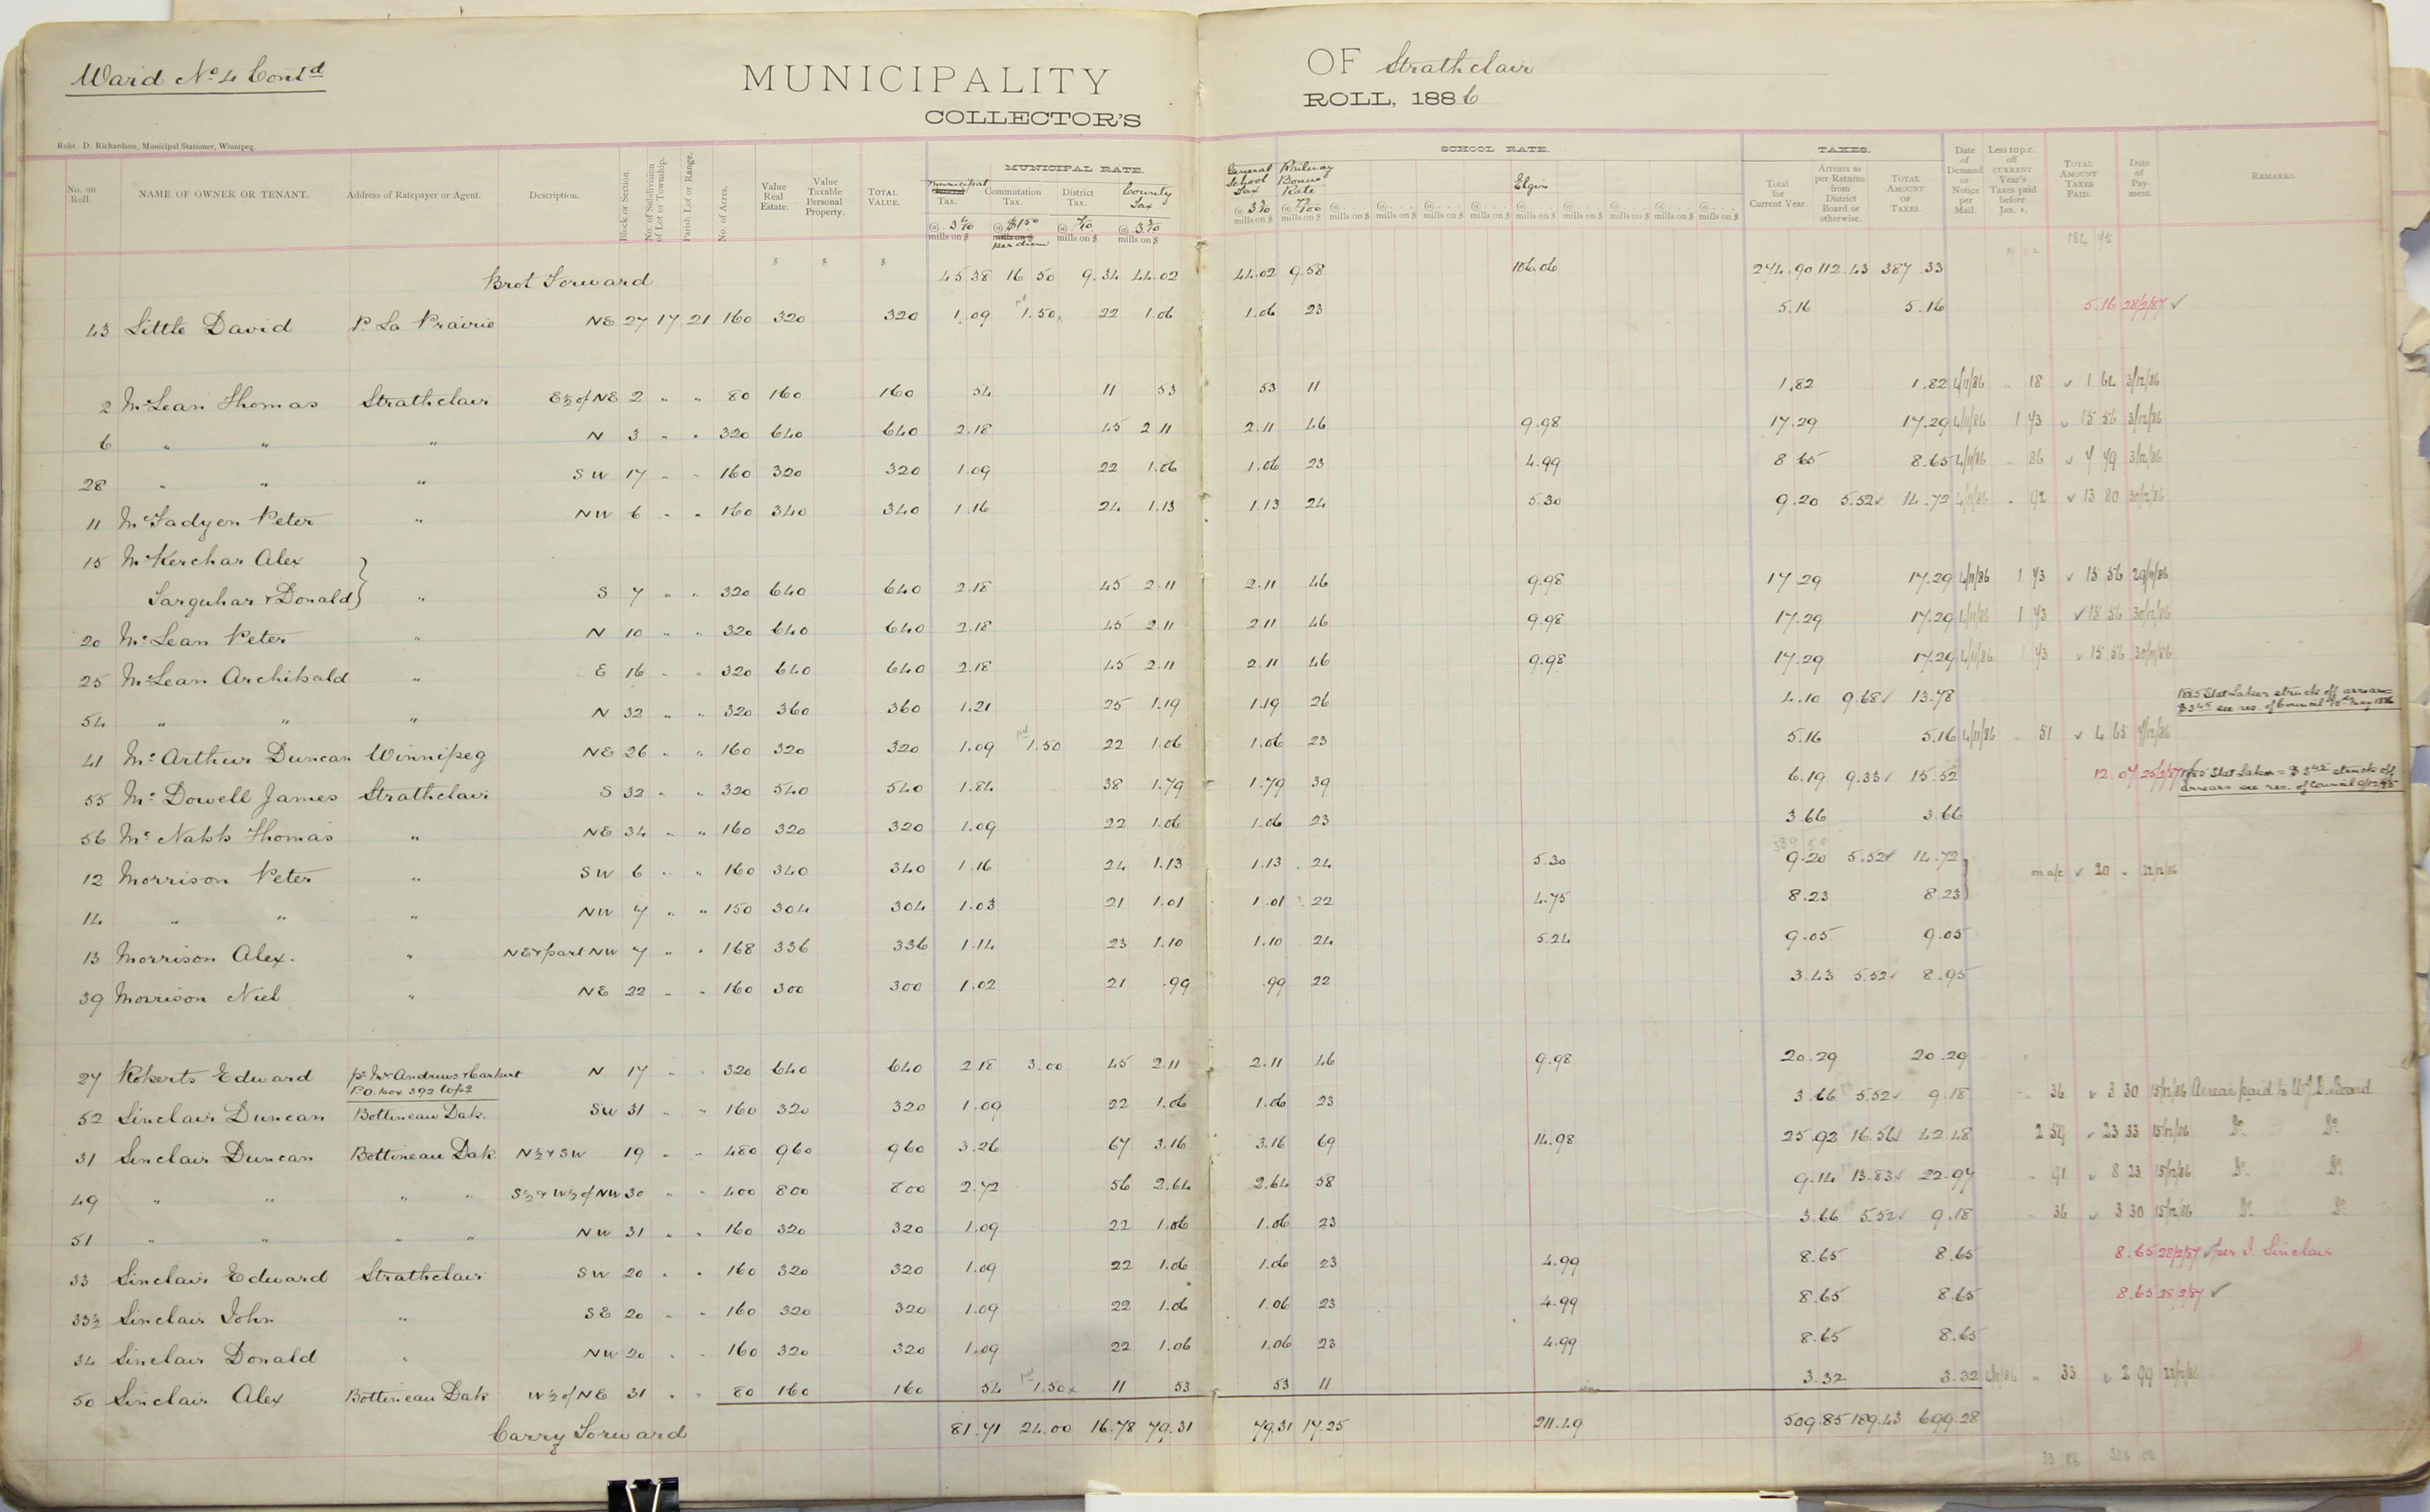 Ward No. 4 Cont'd
MUNICIPALITY OF Strathclair
COLLECTOR'S ROLL, 1886
Robt. D. Richardson, Municipal Stationer, Winnipeg.
MUNICIPAL RATE. SCHOOL RATE. TAXES.
No. on Roll. NAME OF OWNER OR TENANT. Address of Ratepayer or Agent. Description. Block or Section. No. of Subdivision of Lot or Township. Parish Lot or Range. No. of Acres. Value Real Estate. Value Taxable Personal Property. TOTAL VALUE. Municipal Tax. Commutation Tax. District Tax. County Tax General School Tax Railway Bonus Rate Elgin Total for Current Year. Arrears as per Returns from District Board or otherwise. TOTAL AMOUNT OF TAXES. Date of Demand or Notice per Mail. Less 10 p.c. off CURRENT Year's Taxes paid before Jan. 1. TOTAL AMOUNT TAXES PAID. Date of Payment. REMARKS.
@ 3 4/10 mills on $ @ $1 50 per diem @ 7/10 mills on $ @ 3 3/10 mills on $ @ 3 3/10 mills on $ @ 72/100 mills on $ @ mills on $ @ mills on $ @ mills on $ @ mills on $ @ mills on $ @ mills on $ @ mills on $ @ mills on $ @ mills on $
$ $ $ 184 45
Brot Forward 45.38 16 50 9.34 44.02 44.02 9.58 106.06 274.90 112.43 387.33
43 Little David P. La Prairie NE 27 17 21 160 320 320 1.09 pd 1.50x 22 1.06 1.06 23 5.16 5.16 5.16 28/2/87 ✓
2 McLean Thomas Strathclair E½ of NE 2 " " 80 160 160 54 11 53 53 11 1.82 1.82 4/11/86 " 18 ✓ 1 64 3/12/86
6 " " " N 3 " " 320 640 640 2.18 45 2 11 2.11 46 9.98 17.29 17.29 4/11/86 1 73 ✓ 15 56 3/12/86
28 " " " SW 17 " " 160 320 320 1.09 22 1.06 1.06 23 4.99 8 65 8.65 4/11/86 " 86 ✓ 7 79 3/12/86
11 McFadyen Peter " NW 6 " " 160 340 340 1.16 24 1.13 1.13 24 5.30 9.20 5.52✓ 14.72 4/11/86 " 92 ✓ 13 80 30/12/86
15 McKerchar Alex
Farquhar & Donald } " S 7 " " 320 640 640 2.18 45 2.11 2.11 46 9.98 17 29 17.29 4/11/86 1 73 ✓ 15 56 29/11/86
20 McLean Peter " N 10 " " 320 640 640 2.18 45 2.11 2 11 46 9.98 17.29 17.29 4/11/86 1 73 ✓ 15 56 30/12/86
25 McLean Archibald " E 16 " " 320 640 640 2.18 45 2.11 2.11 46 9.98 17.29 17.29 4/11/86 1 73 ✓ 15 56 30/11/86
54 " " " N 32 " " 320 360 360 1.21 25 1.19 1.19 26 4.10 9.68✓ 13.78 1885 Stat Labor struck off arrears $3 45 see res. of Council 15th May 1886
41 McArthur Duncan Winnipeg NE 26 " " 160 320 320 1.09 pd 1.50 22 1.06 1.06 23 5.16 5.16 4/11/86 " 51 ✓ 4 65
55 McDowell James Strathclair S 32 " " 320 540 540 1.84 38 1.79 1.79 39 6.19 9.33✓ 15.52 12.07 25/2/87 1885 Stat Labor = $3 45 struck off arrears see res. of Council
56 McNabb Thomas " NE 34 " " 160 320 320 1.09 22 1.06 1.06 23 3.66 3.66
12 Morrison Peter " SW 6 " " 160 340 340 1.16 24 1.13 1.13 24 5.30 9.20 5.52✓ 14.72 } on a/c ✓ 20 " 22/12/86
14 " " " NW 7 " " 150 304 304 1.03 21 1.01 1.01 22 4.75 8.23 8.23
13 Morrison Alex. " NE & part NW 7 " " 168 336 336 1.14 23 1.10 1.10 24 5.24 9.05 9.05
39 Morrison Niel " NE 22 " " 160 300 300 1.02 21 .99 .99 22 3.43 5.52✓ 8.95
27 Roberts Edward N 17 " " 320 640 640 2.18 3.00 45 2.11 2.11 46 9.98 20.29 20.29
P.O. box 392 Wpg
52 Sinclair Duncan Bottineau Dak. SW 31 " " 160 320 320 1.09 22 1.06 1.06 23 3.66 5.52✓ 9.18 " 36 ✓ 3 30 15/12/86 Arrears paid to W.J.D. Board
31 Sinclair Duncan Bottineau Dak. N½ & SW 19 " " 480 960 960 3.26 67 3.16 3.16 69 14.98 25.92 16.56✓ 42.48 2 59 ✓ 23 33 15/12/86 Do. Do.
49 " " " " S½ & W½ of NW 30 " " 400 800 800 2.72 56 2.64 2.64 58 9.14 13.83✓ 22.97 " 91 ✓ 8 23 15/12/86 Do. Do.
51 " " " " NW 31 " " 160 320 320 1.09 22 1.06 1.06 23 3.66 5.52✓ 9.18 " 36 ✓ 3 30 15/12/86 Do. Do.
33 Sinclair Edward Strathclair SW 20 " " 160 320 320 1.09 22 1.06 1.06 23 4.99 8.65 8.65 8.65 28/2/87 ✓ per J. Sinclair
33½ Sinclair John " SE 20 " " 160 320 320 1.09 22 1.06 1.06 23 4.99 8.65 8.65 8.65 28/2/87 ✓
34 Sinclair Donald " NW 20 " " 160 320 320 1.09 22 1.06 1.06 23 4.99 8.65 8.65
50 Sinclair Alex Bottineau Dak W½ of NE 31 " " 80 160 160 54 pd 1.50x 11 53 53 11 3.32 3.32 4/11/86 " 33 ✓ 2 99 22/12/86
Carry Forward 81.71 24.00 16.78 79.31 79.31 17.25 211.49 509.85 189.43 699.28